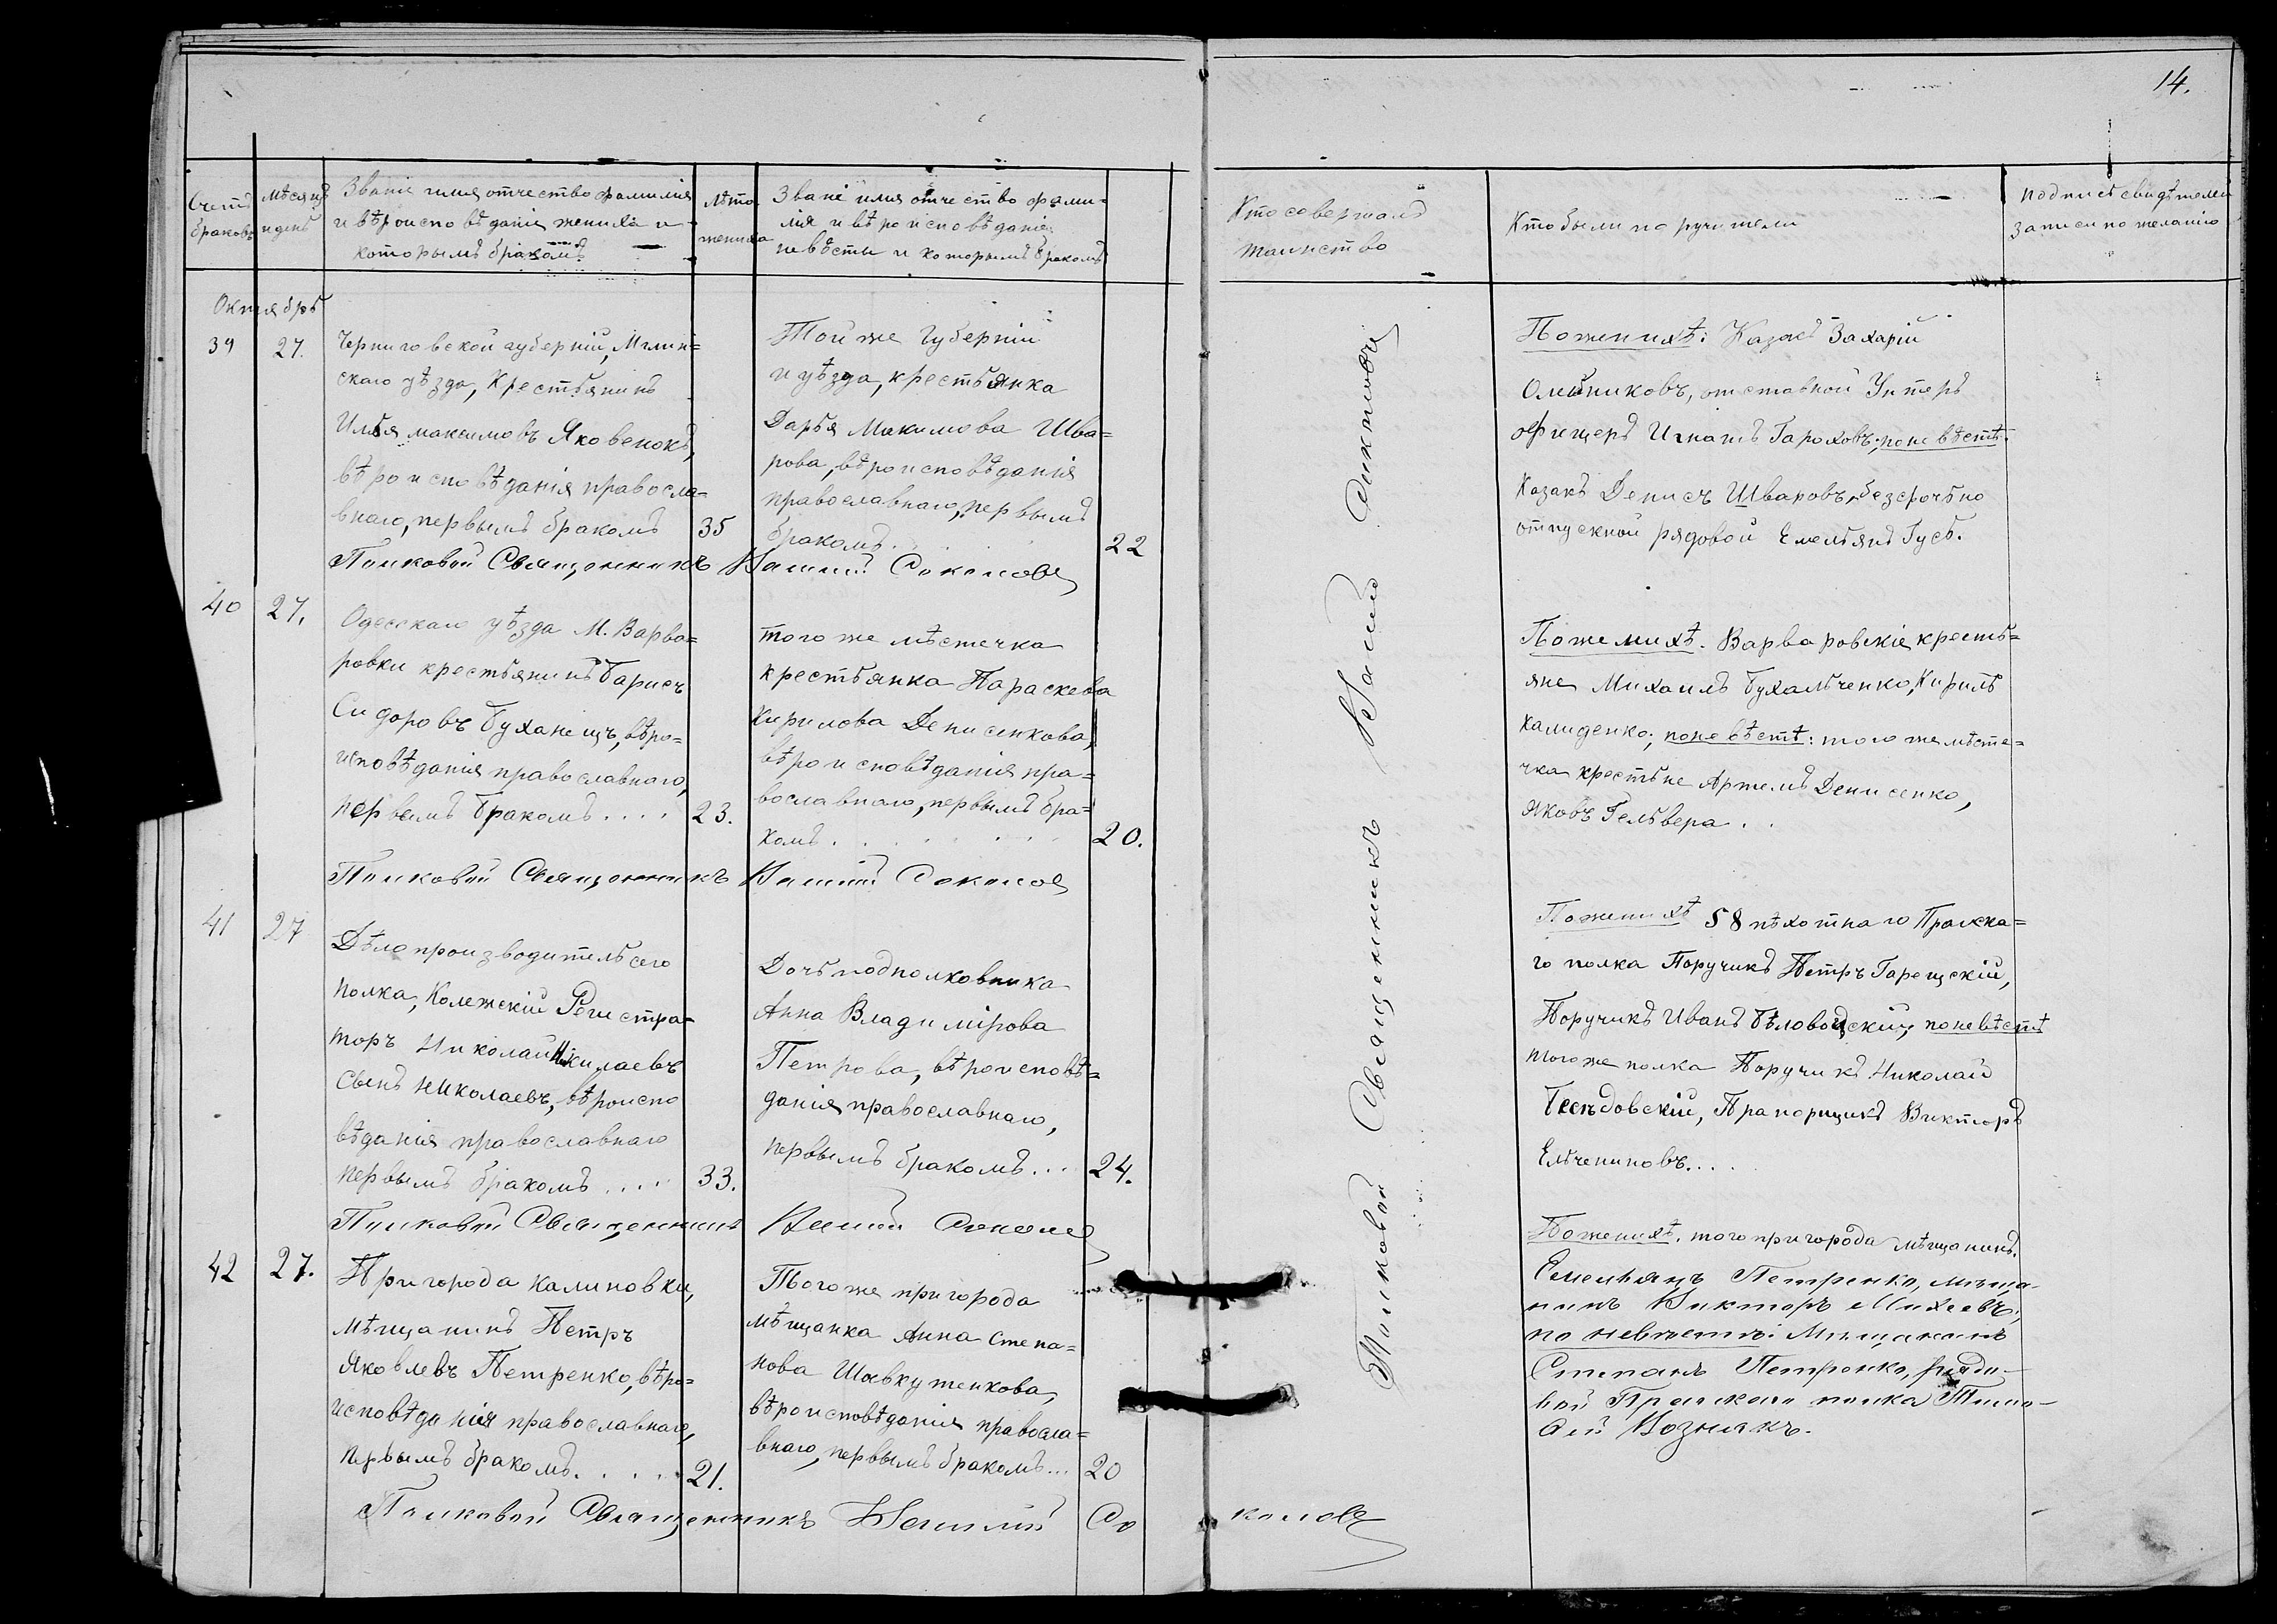 14.
Счетъ браковъ
Мѣсяцъ и день
Званіе имя отчество фамилія
и вѣроисповѣданіе жениха и
которымъ бракомъ
Лѣта жениха
Званіе имя отчество фами=
лія и вѣроисповѣданіе
невѣсты и которымъ бракомъ
Кто совершалъ
таинство
Кто были поручители
подпись свидѣтелей
записи по желанію
Октябрь
39
27.
Черниговской губерніи, Мглин=
скаго уѣзда, Крестьянинъ
Илья максимовъ Яковенокъ,
вѣроисповѣданія правосла=
внаго, первымъ бракомъ
35
Той же Губерніи
и уѣзда, крестьянка
Дарья Макимова Шва=
рова, вѣроисповѣданія
православнаго, первымъ
бракомъ
22
Полковой Священникъ Василій Соколовъ
По женихѣ: Казакъ Захарій
Олейниковъ, отставной Унтеръ
офицеръ Игнатъ Гароховъ; по невѣстѣ:
Казакъ Денисъ Шваровъ, безсрочьно
отпускной рядовой Емельянъ Гусь.
40
27.
Одесскаго уѣзда М. Варва=
ровки крестьянинъ Барисъ
Сидоровъ Буханецъ, вѣро=
исповѣданія православнаго,
первымъ бракомъ ....
23.
того же мѣстечка
крестьянка Параскева
Кирилова Денисенкова,
вѣроисповѣданія пра=
вославнаго, первымъ бра=
комъ
20.
Полковой Священникъ Василій Соколовъ
По женихѣ. Варваровскіе кресть=
яне Михаилъ Бухальченко, Кирилъ
Калиденко; по невѣстѣ: того же мѣсте=
чка крестьне Артемъ Денисенко,
Яковъ Гельвера . .
41
27
Дѣлопроизводитель сего
полка, Колежскій Регистра=
торъ Николай Николаевъ
сынъ Николаевъ, вѣроиспо
вѣданія православнаго
первымъ бракомъ ....
33.
Дочь подполковника
Анна Владимірова
Петрова, вѣроисповѣ=
данія православнаго,
первымъ бракомъ ...
24.
Полковой Священникъ Василій Соколовъ
По женихѣ 58 пѣхотнаго Прагска=
го полка Поручикъ Петръ Гарецскій,
Поручикъ Иванъ Бѣловодскій; по невѣстѣ
того же полка Поручикъ Николай
Бесѣдовскій, Прапорщикъ Викторъ
Ельчениновъ....
42
27.
Пригорода Калиновки,
мѣщанинъ Петръ
Яковлевъ Петренко, вѣро=
исповѣданія православнаго,
первымъ бракомъ. . . . .
21.
Того же пригорода
мѣщанка Анна Степа=
нова Шавкутенкова,
вѣроисповѣданія правосла=
внаго, первымъ бракомъ ...
20
Полковой Священникъ Василій Соколовъ
По женихѣ. того пригорода мѣщанинъ.
Емельянъ Петренко, мѣща-
нинъ Викторъ Михеевъ;
по невѣстѣ: Мѣщанинъ
Степанъ Петренко, рядо-
вой Прагскаго полка Тимо-
фей Вознякъ.
Полковой Священникъ Василій Соколовъ